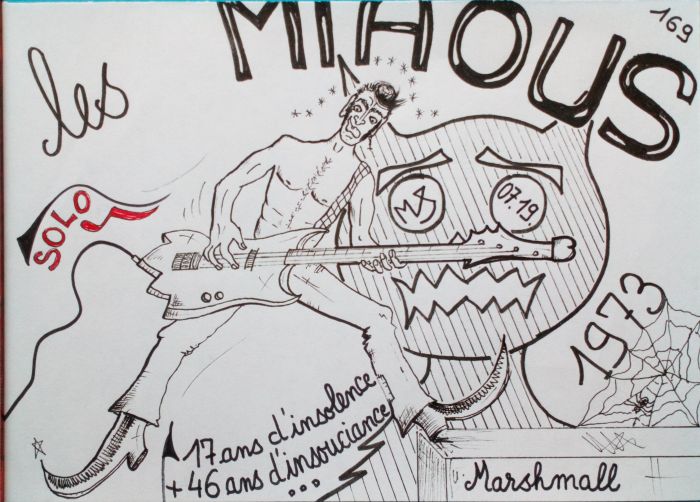 169
les
MIAOUS
SOLO
MS
07.19
1973
17 ans d'insolence
+ 46 ans d'insouciance
...
Marshmall